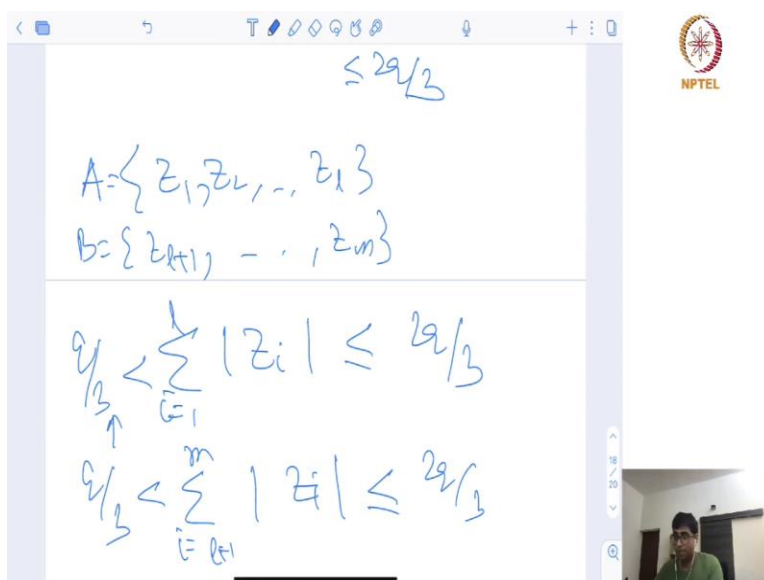 ≤ 2q/3
NPTEL
A = { Z₁, Z₂, ..., Z_l }
B = { Z_{l+1}, ..., Z_m }
q/3 < ∑_{i=1}^{l} |Z_i| ≤ 2q/3
↑
q/3 < ∑_{i=l+1}^{m} |Z_i| ≤ 2q/3
18
/
20